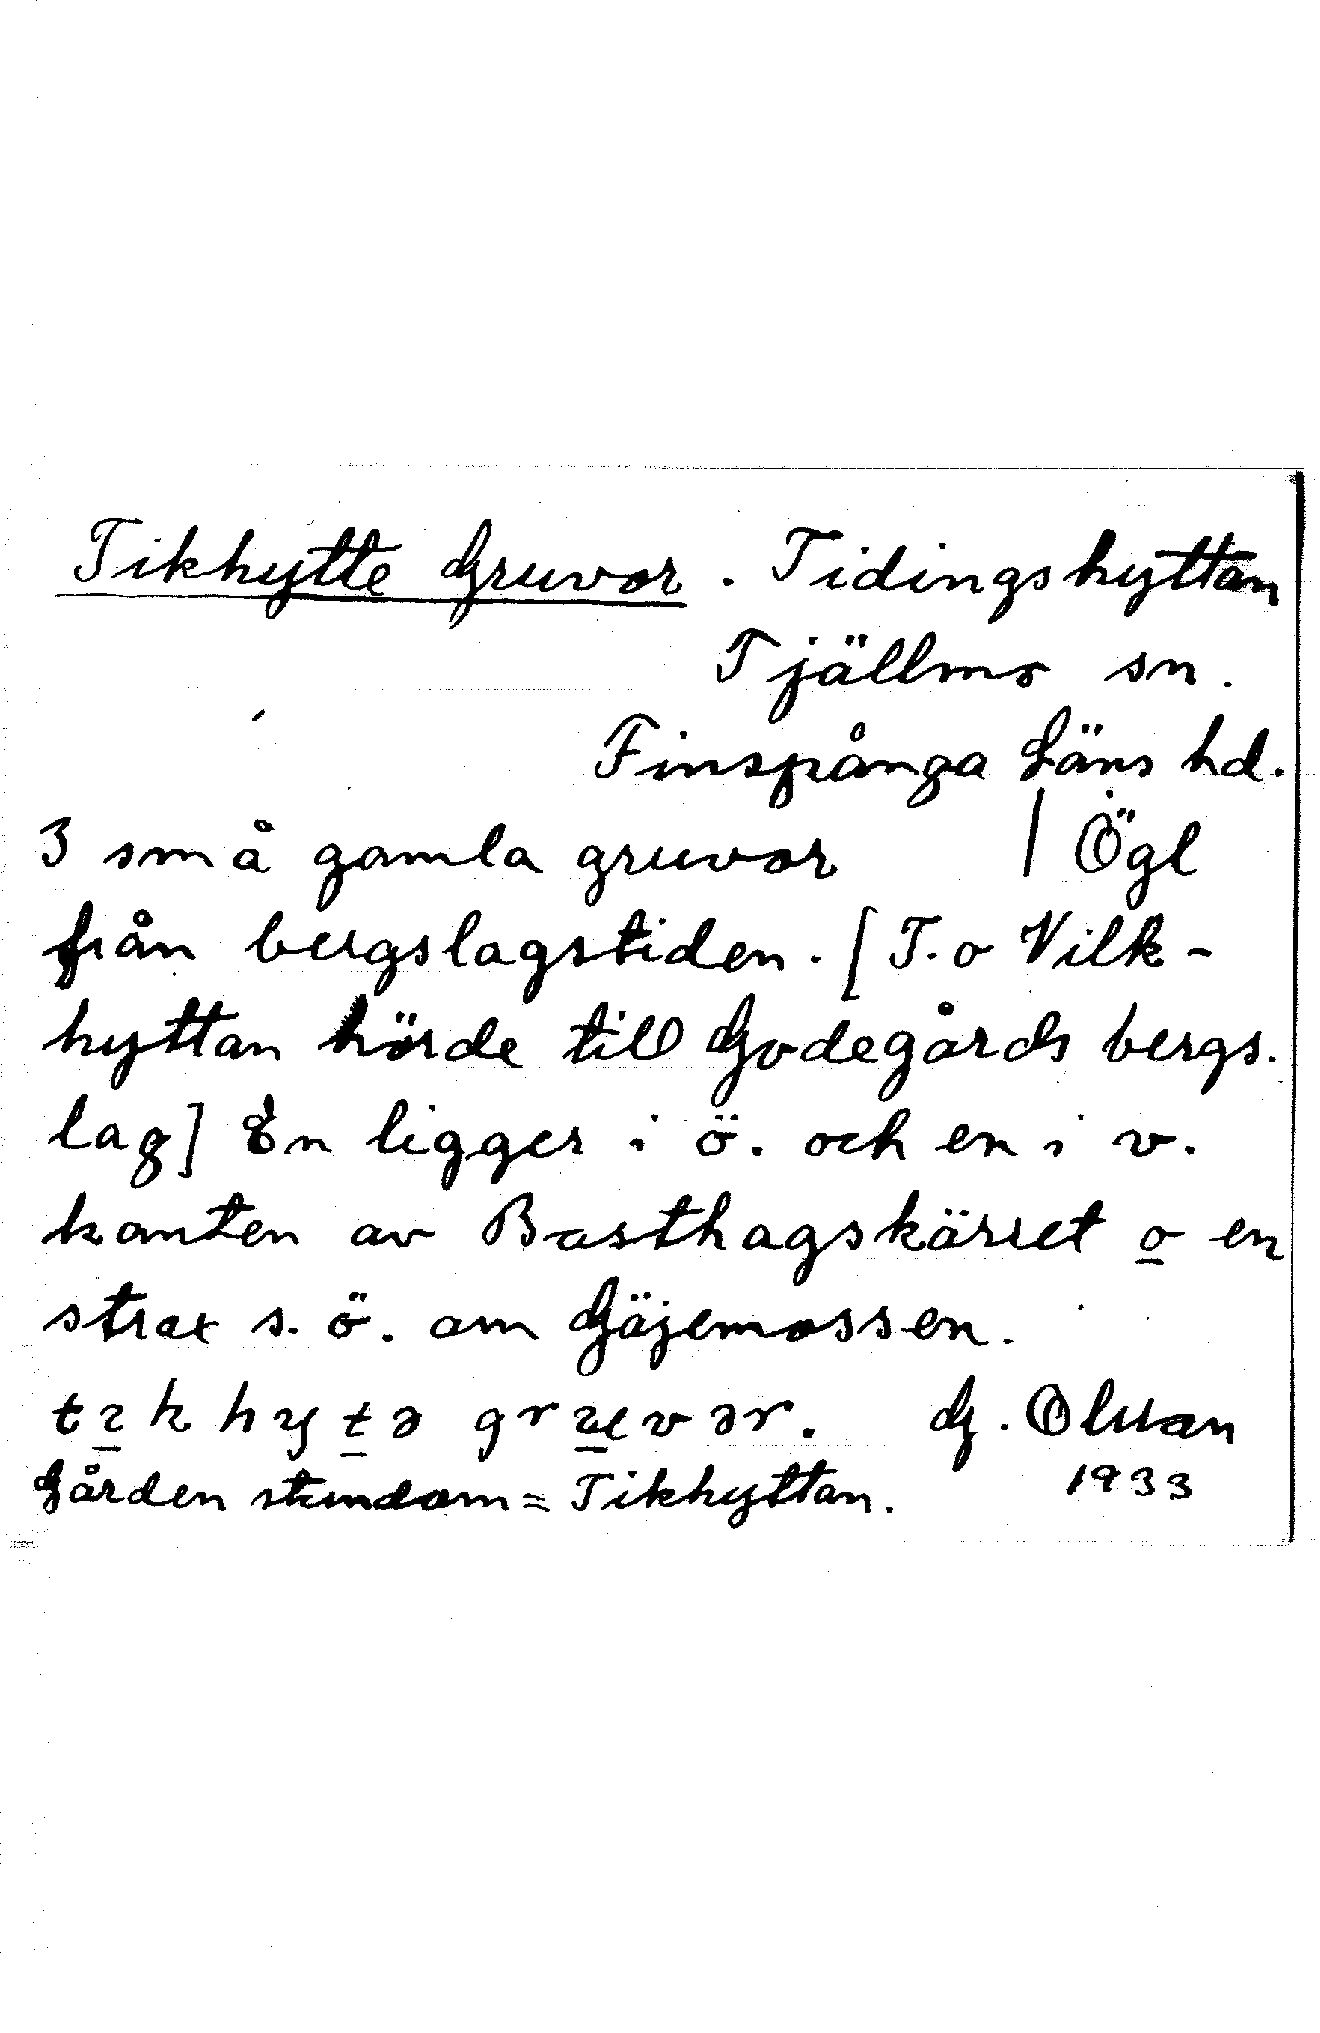 Tikhytte Gruvor. Tidingshyttan
Tjällmo sn.
Finspånga Läns hd.
3 små gamla gruvor | Ögl
från bergslagstiden. [T. o Vilk-
hyttan hörde till Godegårds bergs.
lag] En ligger i ö. och en i v.
kanten av Basthagskärret o en
strax s. ö. om Gäjemossen.
tɪkhytə grʉvər. G. Olsson
Gården stundom = Tikhyttan. 1933